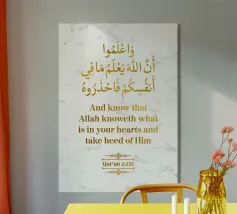 وَاعْلَمُوا
أَنَّ اللَّهَ يَعْلَمُ مَا فِي
أَنْفُسِكُمْ فَاحْذَرُوهُ
And know that
Allah knoweth what
is in your hearts and
take heed of Him
Qur'an 2:235